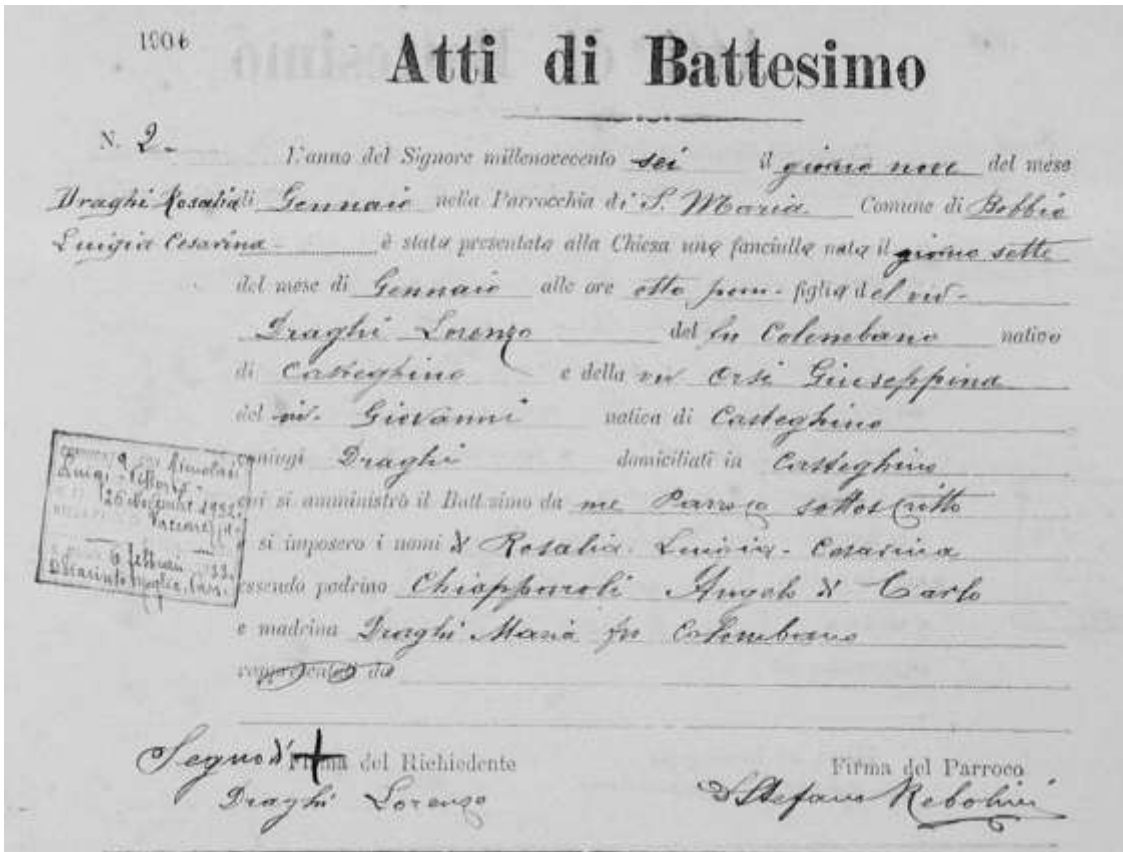 1906
Atti di Battesimo
N. 2.-
L'anno del Signore millenovecento sei il giorno nove del mese
Draghi Rosalia di Gennaio nella Parrocchia di S. Maria Comune di Bobbio
Luigia Cesarina - è stata presentata alla Chiesa una fanciulla nata il giorno sette
del mese di Gennaio alle ore otto pom. figlia del viv.
Draghi Lorenzo del fu Colombano nativo
di Casteghino e della viv Orsi Giuseppina
del viv. Giovanni nativa di Casteghino
coniugi Draghi domiciliati in Casteghino
cui si amministrò il Battesimo da me Parroco sottoscritto
e si imposero i nomi di Rosalia - Luigia - Cesarina
essendo padrino Chiapparoli Angelo di Carlo
e madrina Draghi Maria fu Colombano
rappresentati da
Luigi
26
1932
6 febbraio 1933
Segno di + Firma del Richiedente
Draghi Lorenzo
Firma del Parroco
D. Stefano Rebolini